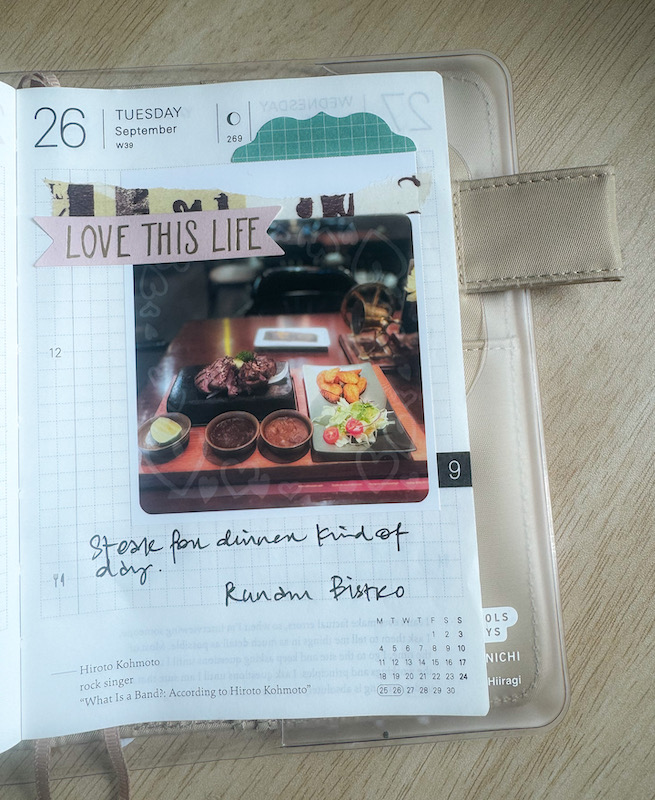 26
TUESDAY
September
W39
269
LOVE THIS LIFE
12
9
Steak for dinner kind of
day.
Bistro
M T W T F S S
1 2 3
4 5 6 7 8 9 10
11 12 13 14 15 16 17
18 19 20 21 22 23 24
25 26 27 28 29 30
Hiroto Kohmoto
rock singer
"What Is a Band?: According to Hiroto Kohmoto"
OLS
YS
NICHI
Hiiragi